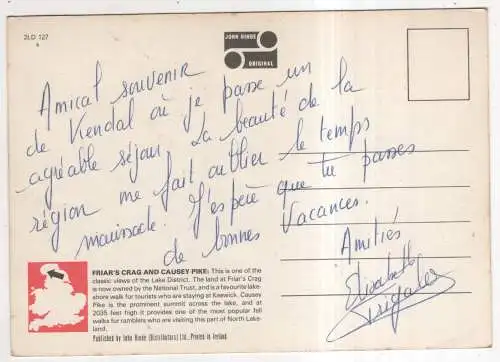 2LO 127
JOHN HINDE
ORIGINAL
Amical souvenir
de Kendal où je passe un
agréable séjour. La beauté de la
région me fait oublier le temps
maussade. J'espère que tu passes
de bonnes vacances.
Amitiés
Elisabeth
FRIAR'S CRAG AND CAUSEY PIKE: This is one of the
classic views of the Lake District. The land at Friar's Crag
is now owned by the National Trust, and is a favourite lake-
shore walk for tourists who are staying at Keswick. Causey
Pike is the prominent summit across the lake, and at
2035 feet high it provides one of the most popular fell
walks for ramblers who are visiting this part of North Lake-
land.
Published by John Hinde (Distributors) Ltd., Printed in Ireland.